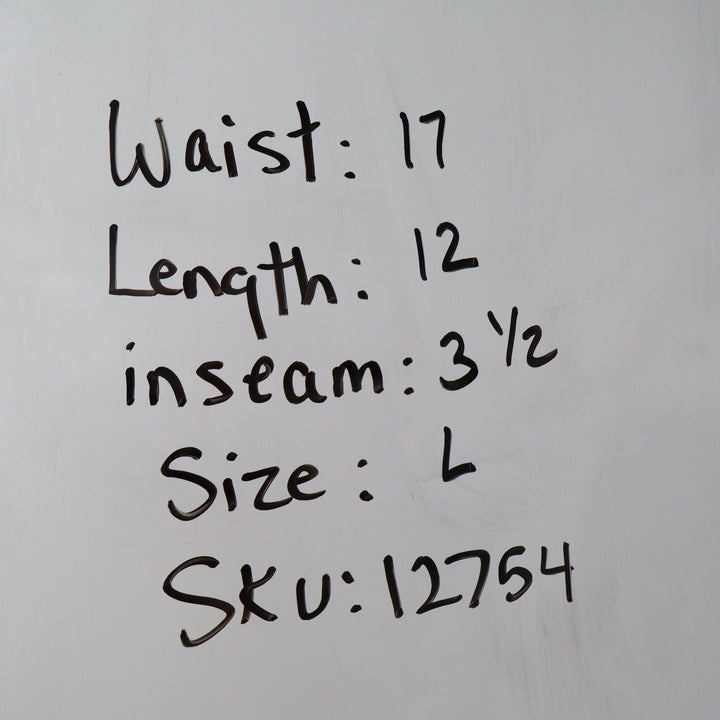 Waist: 17
Length: 12
inseam: 3 1/2
Size: L
SKU: 12754